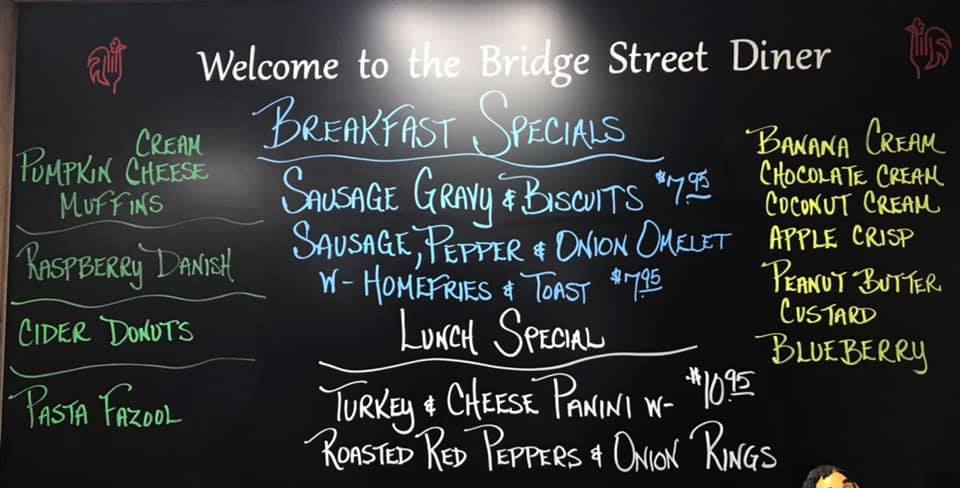 Welcome to the Bridge Street Diner
CREAM
PUMPKIN CHEESE
MUFFINS
RASPBERRY DANISH
CIDER DONUTS
PASTA FAZOOL
BREAKFAST SPECIALS
SAUSAGE GRAVY & BISCUITS $7.95
SAUSAGE, PEPPER & ONION OMELET
W- HOMEFRIES & TOAST $7.95
LUNCH SPECIAL
TURKEY & CHEESE PANINI W- $10.95
ROASTED RED PEPPERS & ONION RINGS
BANANA CREAM
CHOCOLATE CREAM
COCONUT CREAM
APPLE CRISP
PEANUT BUTTER
CUSTARD
BLUEBERRY